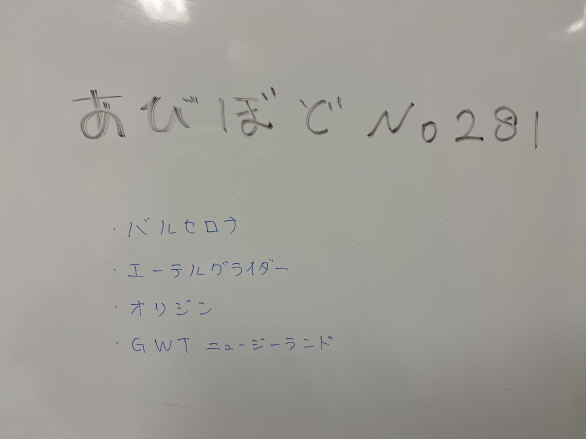 あびぼど No 281
・バルセロナ
・エーテルグライダー
・オリジン
・GWT ニュージーランド